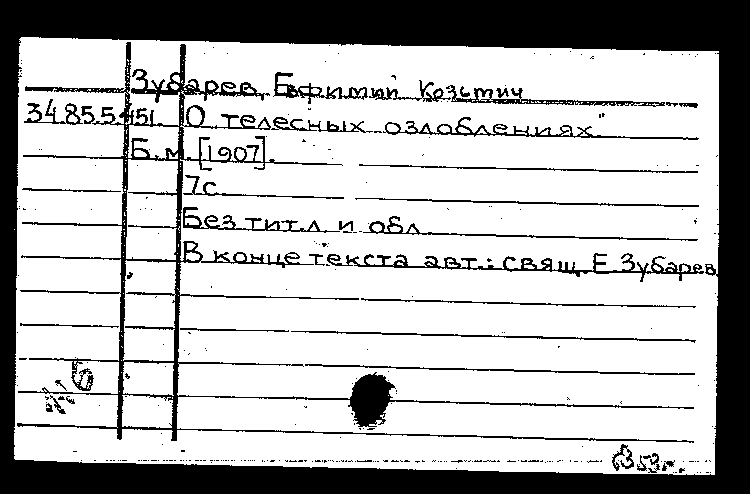 Зубарев, Евфимий Козьмич
34.85.5.451. О телесных озлоблениях"
Б.м. [1907].
7с.
Без тит.л. и обл.
В конце текста авт.: свящ. Е Зубарев